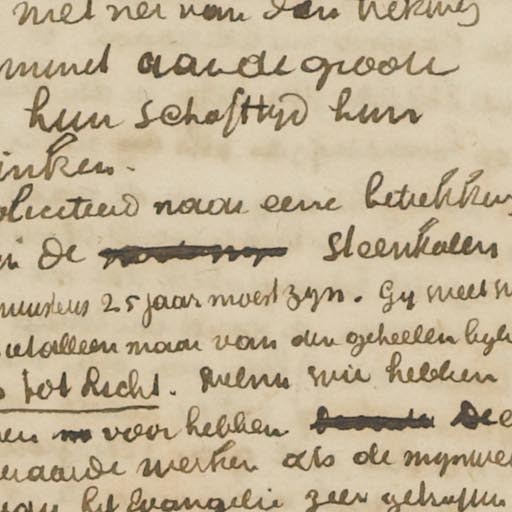 met het van den trekweg
aan de groote
hun schafttijd hun
inken.
naar eene betrekking
in de Steenkolen
minstens 25 jaar moest zyn. Gy weet
niet alleen maar van den geheelen byb
tot licht. Welnu wie hebben
voor hebben De
werken als de mynwe
het Evangelie zeer getroffen